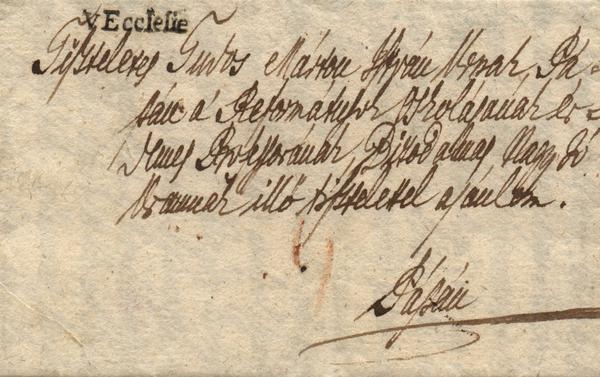 V Ecclesie
Tiszteletes Tudos Márton István Urnak, Pá-
pán a' Reformátusok Oskolájának ér-
demes Professorának, Bizodalmas Nagy Jó
Uramnak illő tisztelettel ajánlom.
Pápán